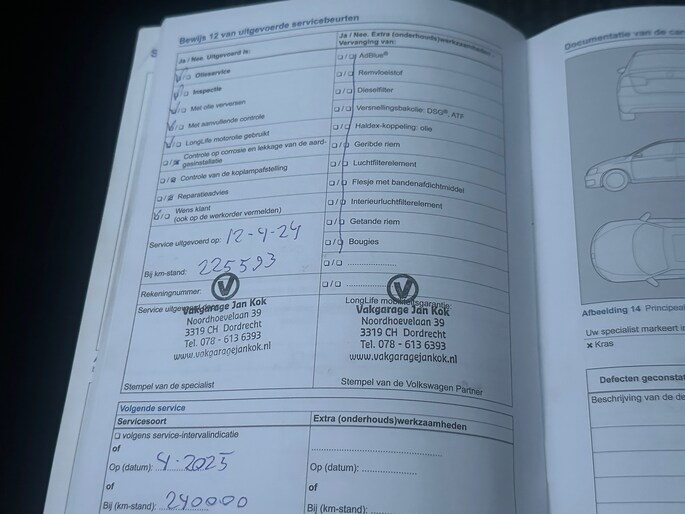 Bewijs 12 van uitgevoerde servicebeurten
Ja / Nee. Uitgevoerd is:
Olieservice
Inspectie
Met olie verversen
Met aanvullende controle
LongLife motorolie gebruikt
Controle op corrosie en lekkage van de aard-
gasinstallatie
Controle van de koplampafstelling
Reparatieadvies
Wens klant
(ook op de werkorder vermelden)
Service uitgevoerd op: 12-4-24
Bij km-stand: 225593
Rekeningnummer:
Service uitgevoerd door:
Vakgarage Jan Kok
Noordhoevelaan 39
3319 CH Dordrecht
Tel. 078 - 613 6393
www.vakgaragejankok.nl
Stempel van de specialist
Ja / Nee. Extra (onderhouds)werkzaamheden:
Vervanging van:
AdBlue®
Remvloeistof
Dieselfilter
Versnellingsbakolie: DSG®, ATF
Haldex-koppeling: olie
Geribde riem
Luchtfilterelement
Flesje met bandenafdichtmiddel
Interieurluchtfilterelement
Getande riem
Bougies
LongLife mobiliteitsgarantie:
Vakgarage Jan Kok
Noordhoevelaan 39
3319 CH Dordrecht
Tel. 078 - 613 6393
www.vakgaragejankok.nl
Stempel van de Volkswagen Partner
Volgende service
Servicesoort
volgens service-intervalindicatie
of
Op (datum): 4-2025
of
Bij (km-stand): 240000
Extra (onderhouds)werkzaamheden
Op (datum):
of
Bij (km-stand):
Documentatie van de car
Afbeelding 14 Principeaf
Uw specialist markeert in
× Kras
Defecten geconstat
Beschrijving van de de